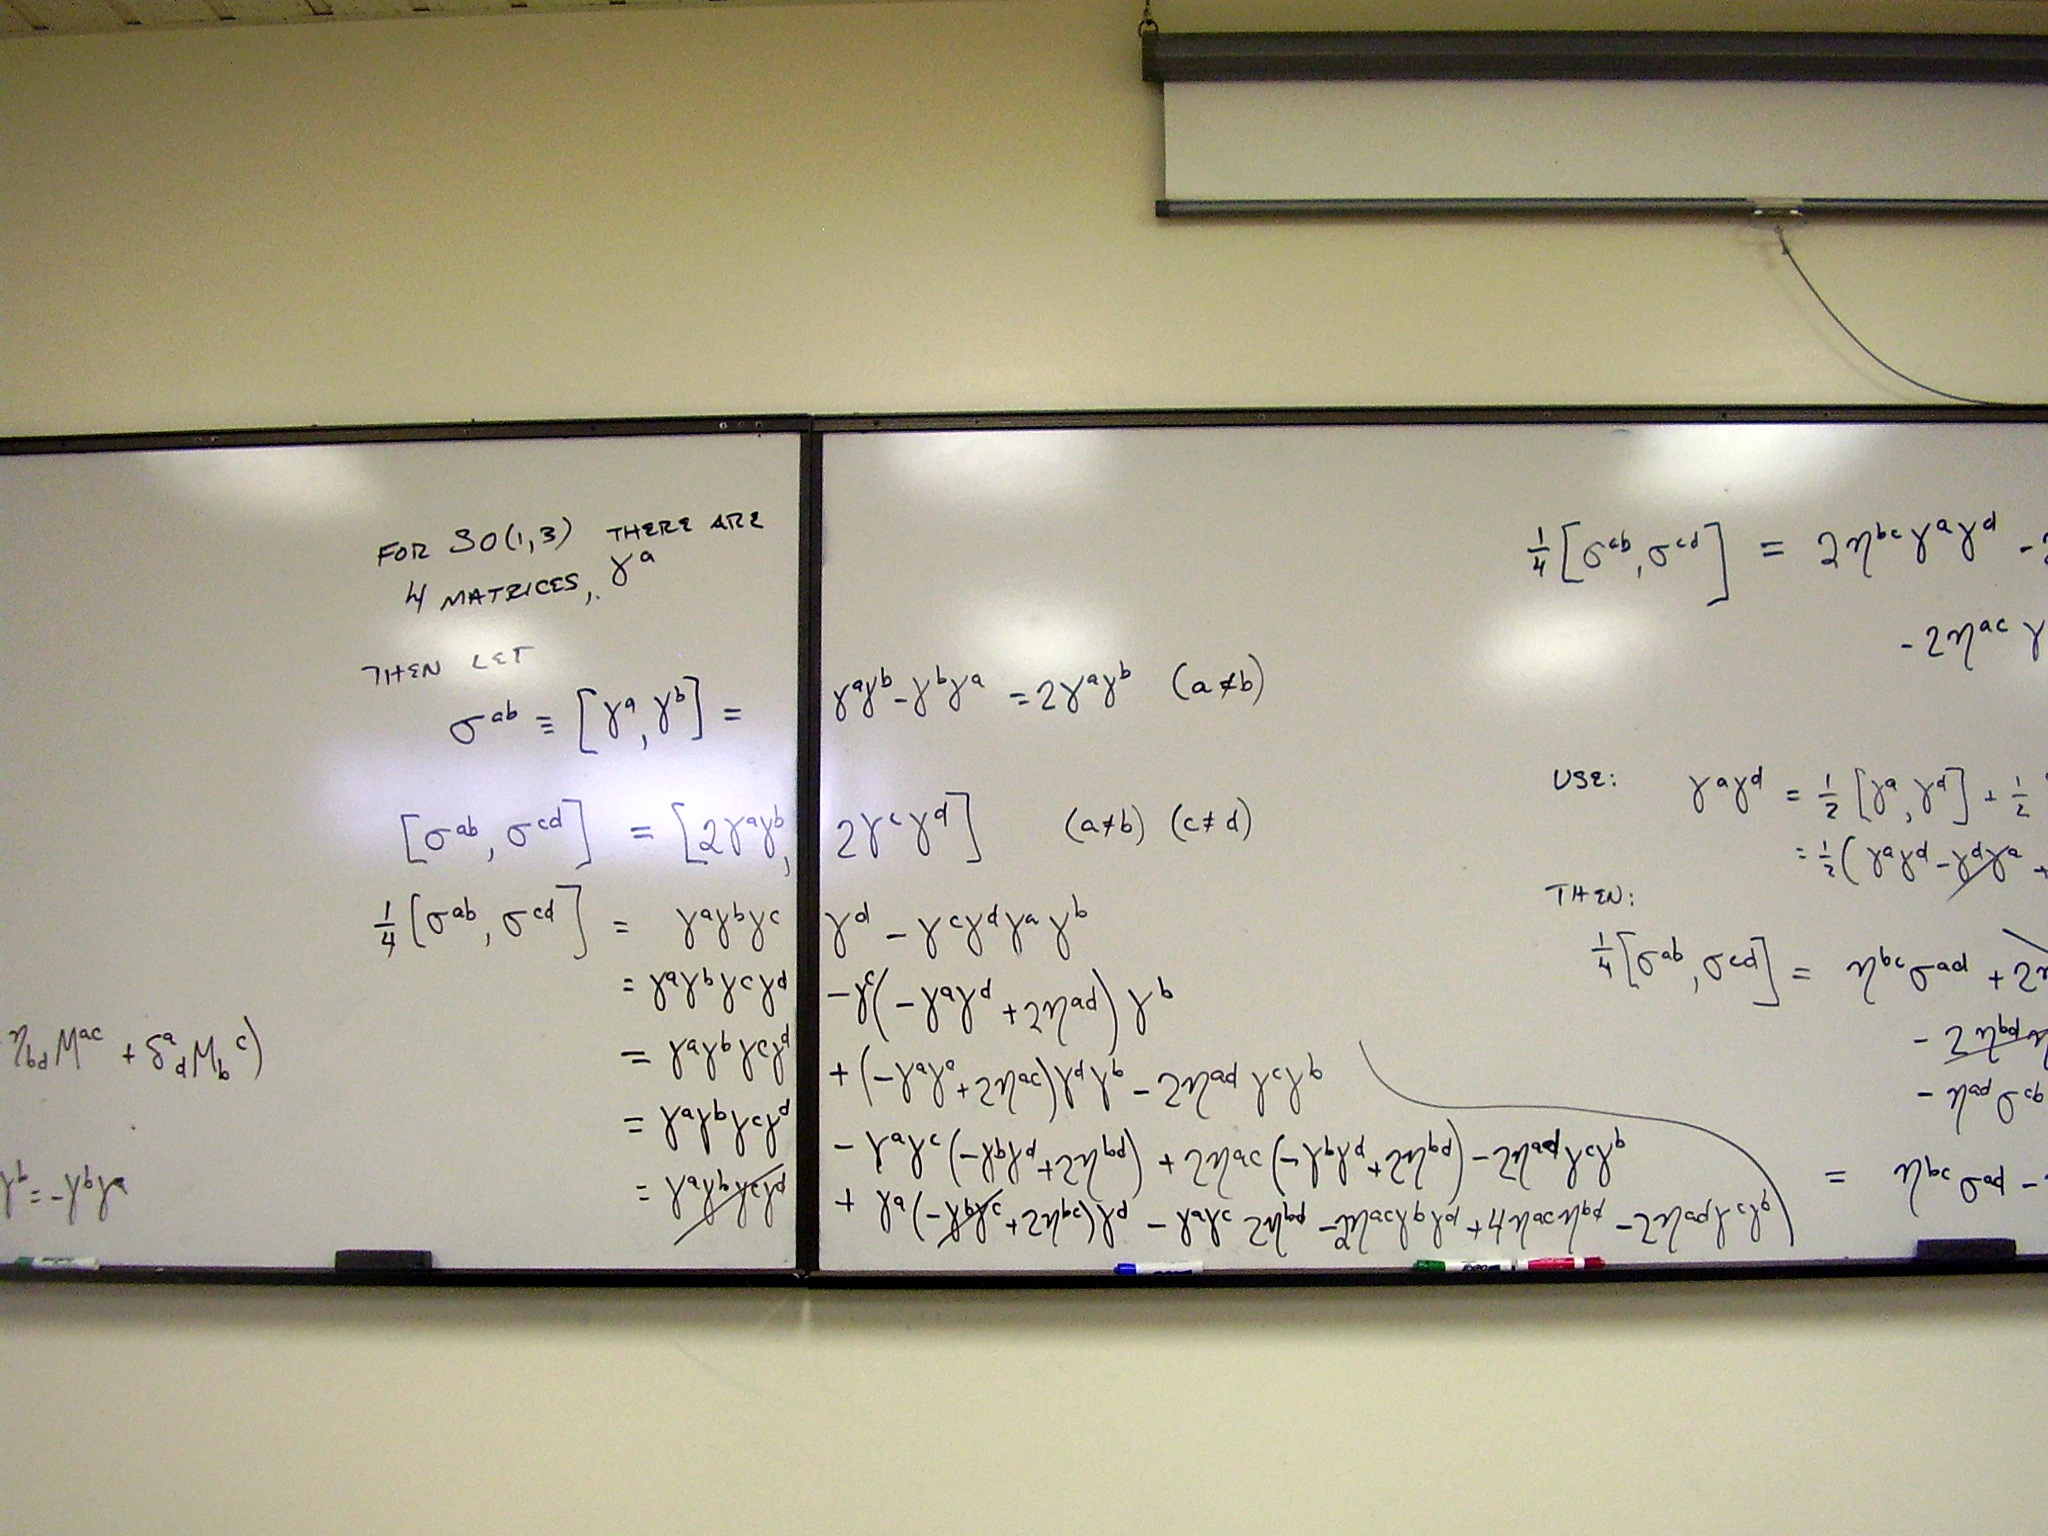 FOR SO(1,3) THERE ARE
4 MATRICES, γ^a
THEN LET
σ^{ab} ≡ [γ^a, γ^b] = γ^aγ^b - γ^bγ^a = 2γ^aγ^b (a≠b)
[σ^{ab}, σ^{cd}] = [2γ^aγ^b, 2γ^cγ^d] (a≠b) (c≠d)
1/4 [σ^{ab}, σ^{cd}] = γ^aγ^bγ^cγ^d - γ^cγ^dγ^aγ^b
= γ^aγ^bγ^cγ^d - γ^c(-γ^aγ^d + 2η^{ad})γ^b
= γ^aγ^bγ^cγ^d + (-γ^aγ^c + 2η^{ac})γ^dγ^b - 2η^{ad}γ^cγ^b
= γ^aγ^bγ^cγ^d - γ^aγ^c(-γ^bγ^d + 2η^{bd}) + 2η^{ac}(-γ^bγ^d + 2η^{bd}) - 2η^{ad}γ^cγ^b
= γ^aγ^bγ^cγ^d + γ^a(-γ^bγ^c + 2η^{bc})γ^d - γ^aγ^c 2η^{bd} - 2η^{ac}γ^bγ^d + 4η^{ac}η^{bd} - 2η^{ad}γ^cγ^b
η_{bd}M^{ac} + δ^a_d M_b^c)
γ^b = -γ^bγ^a
1/4 [σ^{ab}, σ^{cd}] = 2η^{bc}γ^aγ^d -
- 2η^{ac}γ
USE: γ^aγ^d = 1/2 [γ^a, γ^d] + 1/2
= 1/2 (γ^aγ^d - γ^dγ^a +
THEN:
1/4 [σ^{ab}, σ^{cd}] = η^{bc}σ^{ad} + 2η
-
- η^{ad}σ^{cb}
= η^{bc}σ^{ad} -